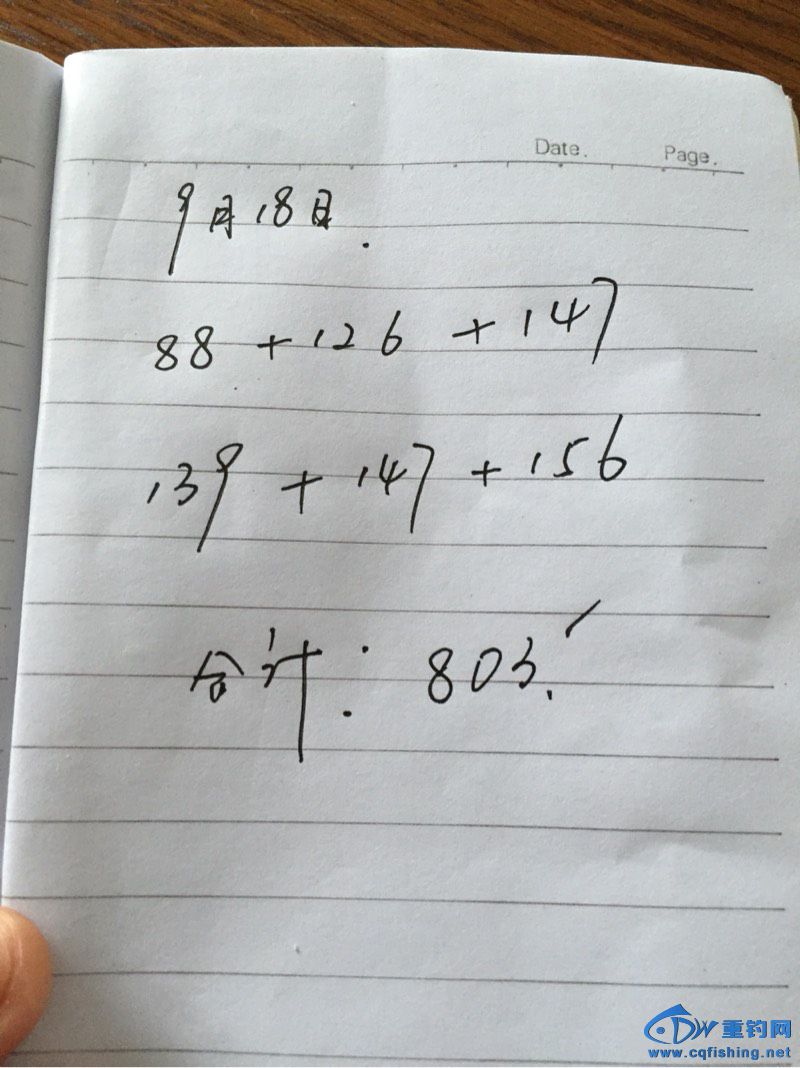 Date. Page.
9月18日.
88 + 126 + 147
139 + 147 + 156
合计: 803.
重钓网
www.cqfishing.net